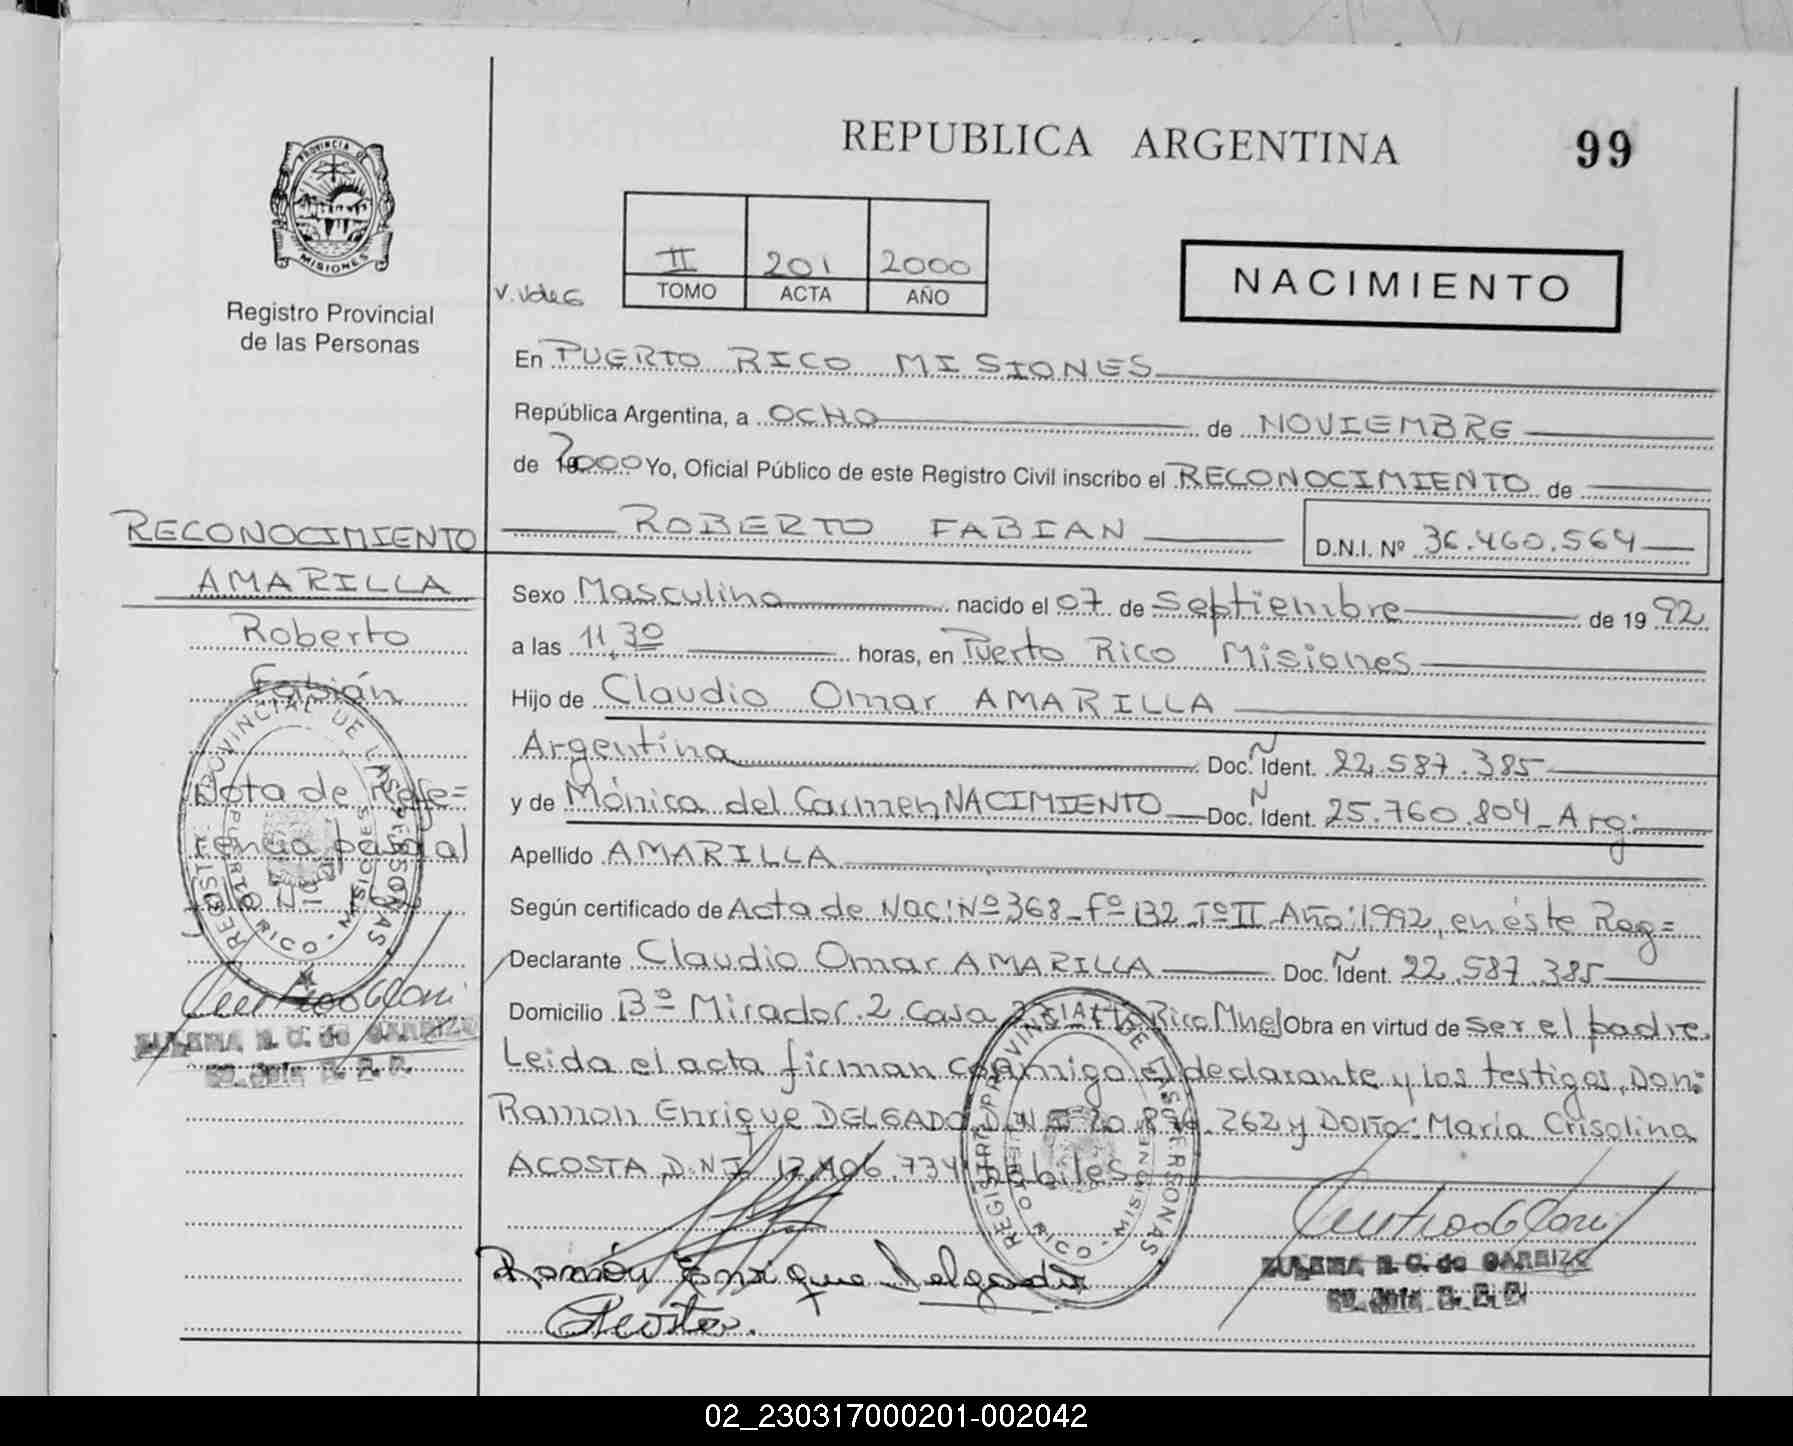 REPUBLICA ARGENTINA
99
PROVINCIA DE
MISIONES
Registro Provincial
de las Personas
II 201 2000
TOMO ACTA AÑO
NACIMIENTO
En PUERTO RICO MISIONES
República Argentina, a OCHO de NOVIEMBRE
de 2000 Yo, Oficial Público de este Registro Civil inscribo el RECONOCIMIENTO de
ROBERTO FABIAN D.N.I. Nº 36.460.564
RECONOCIMIENTO
AMARILLA
Roberto
Fabián
Nota de Refe=
rencia pasó al
Sexo Masculino nacido el 07 de Septiembre de 19 92
a las 11,30 horas, en Puerto Rico Misiones
Hijo de Claudio Omar AMARILLA
Argentina Doc. Ñ Ident. 22.587.385
y de Mónica del Carmen NACIMIENTO Doc. N Ident. 25.760.804 Arg:
Apellido AMARILLA
Según certificado de Acta de Nac: Nº 368 Fº 132 Tº II Año: 1992, en éste Reg=
Declarante Claudio Omar AMARILLA Doc. Ñ Ident. 22.587.385
Domicilio Bº Mirador 2 Casa Pto Rico Mnes Obra en virtud de ser el padre
Leida el acta firman conmigo el declarante y los testigos Don:
Ramon Enrique DELGADO D.N.I. 20.896.262 y Doña: María Crisolina
ACOSTA D.N.I 12.406.734 hábiles
Ramón Enrique Delgado
Acosta.
REGISTRO PROVINCIAL DE LAS PERSONAS
PUERTO RICO - MISIONES
ZULEMA R. G. de GARBIZO
02_230317000201-002042